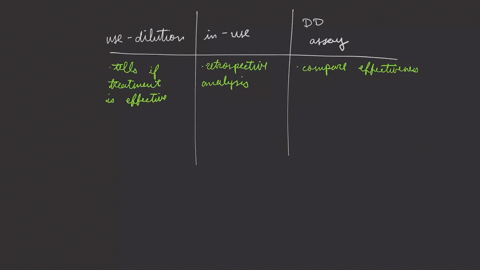 use-dilution
in-use
DD
assay
· tells if
treatment
is effective
· retrospective
analysis
· compare effectiveness